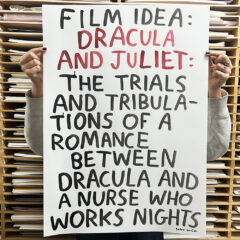 FILM IDEA:
DRACULA
AND JULIET:
THE TRIALS
AND TRIBULA-
TIONS OF A
ROMANCE
BETWEEN
DRACULA AND
A NURSE WHO
WORKS NIGHTS